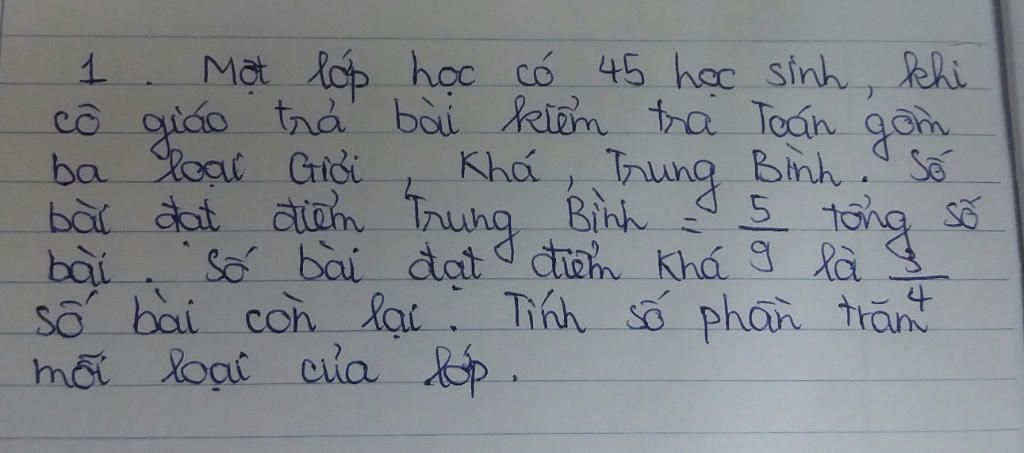 1. Một lớp học có 45 học sinh, khi
cô giáo trả bài kiểm tra Toán gồm
ba loại Giỏi, Khá, Trung Bình. Số
bài đạt điểm Trung Bình = 5/9 tổng số
bài. Số bài đạt điểm Khá là 3/4
số bài còn lại. Tính số phần trăm
mỗi loại của lớp.